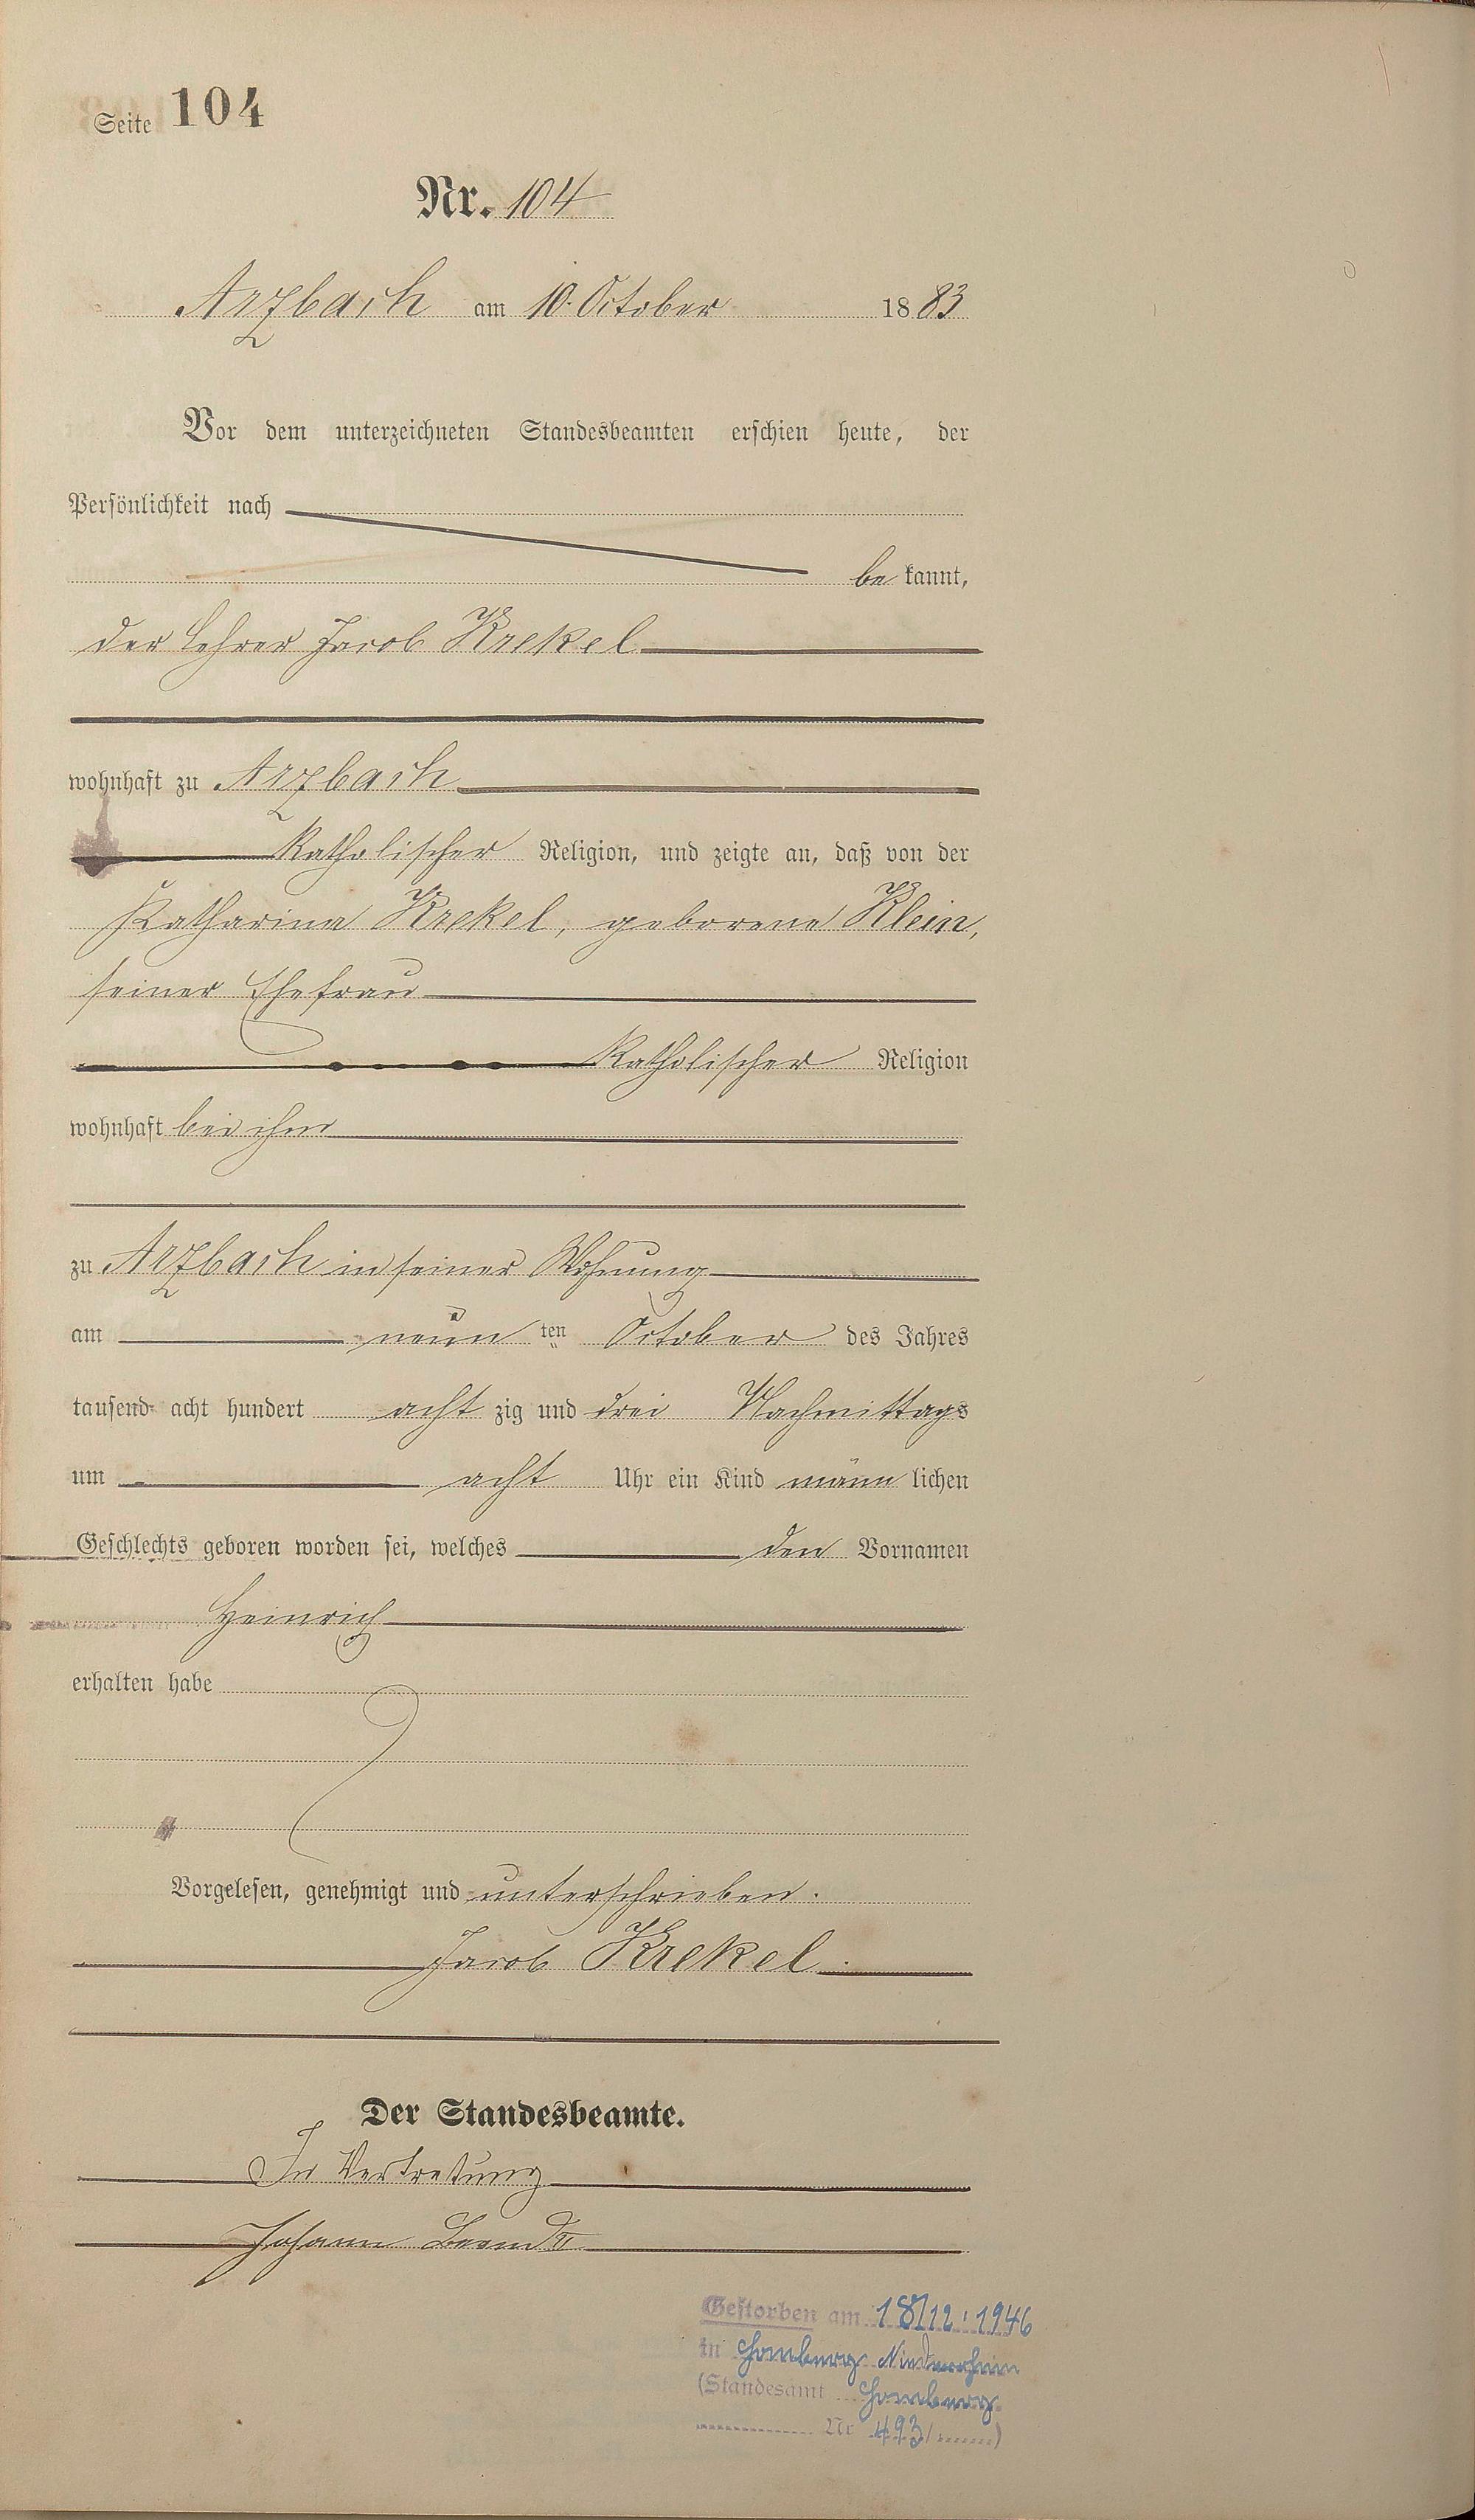 Seite 104
Nr. 104
Arzbach am 10. October 1883
Vor dem unterzeichneten Standesbeamten erschien heute, der
Persönlichkeit nach
be kannt,
der Lehrer Jacob Krekel
wohnhaft zu Arzbach
katholischer Religion, und zeigte an, daß von der
Katharina Krekel, geborene Klein,
seiner Ehefrau
katholischer Religion
wohnhaft bei ihm
zu Arzbach in seiner Wohnung
am neun ten October des Jahres
tausend acht hundert acht zig und drei Nachmittags
um acht Uhr ein Kind männ lichen
Geschlechts geboren worden sei, welches den Vornamen
Heinrich
erhalten habe
Vorgelesen, genehmigt und unterschrieben.
Jacob Krekel.
Der Standesbeamte.
In Vertretung
Johann
Gestorben am 18/12.1946
in Homberg Niederrhein
(Standesamt Homberg
Nr 493/ )